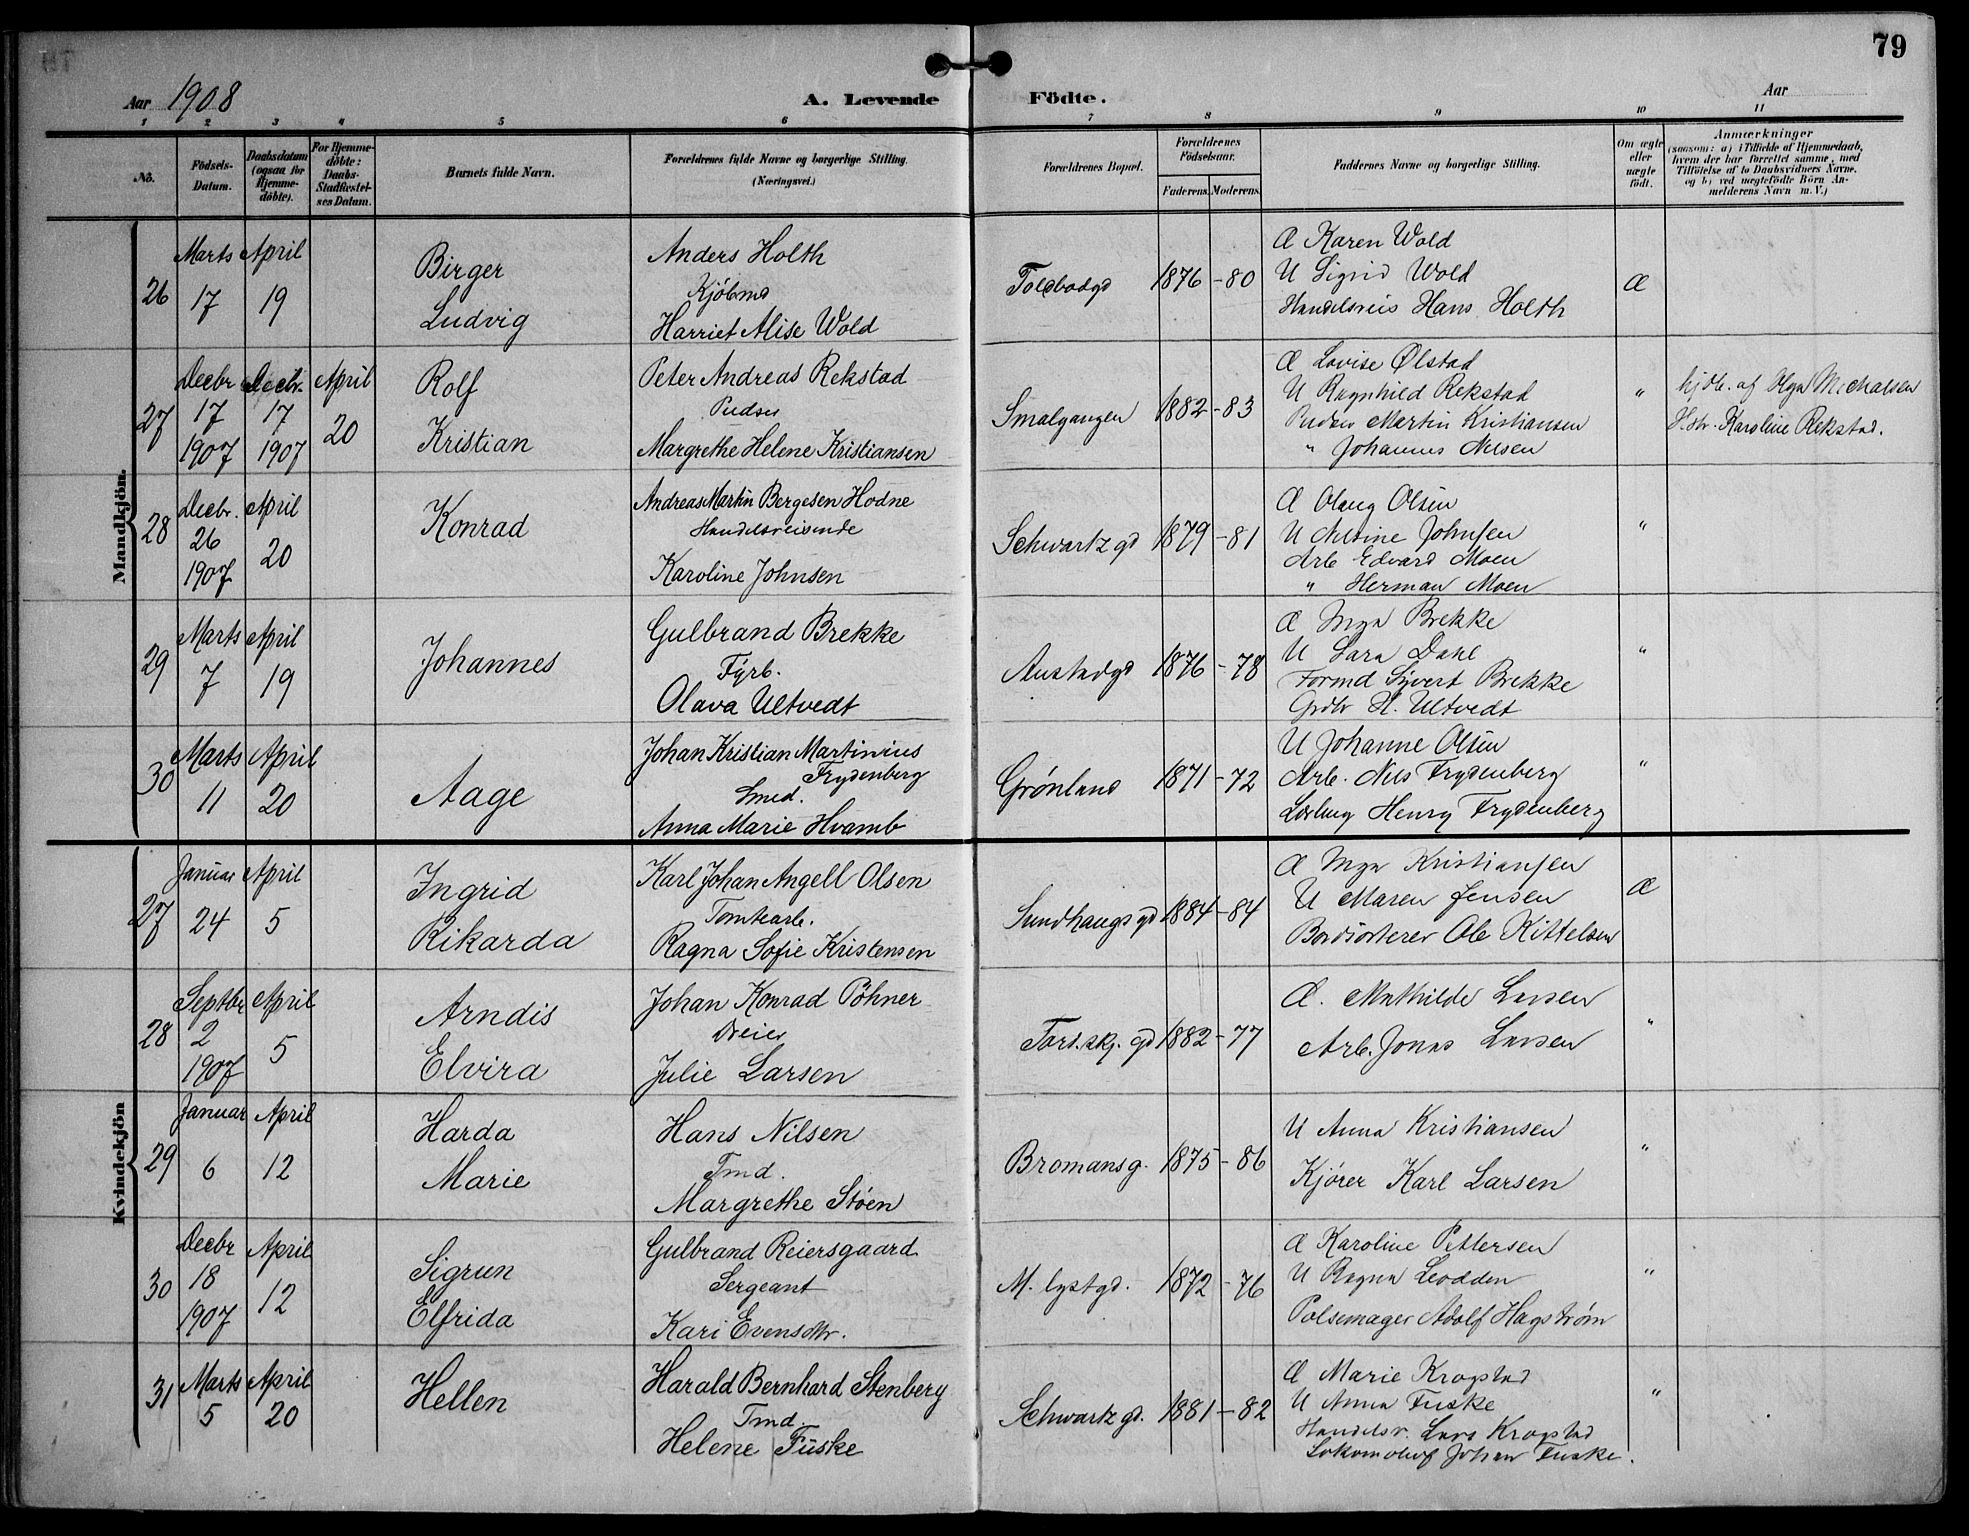 79
Aar 1908
A. Levende
Födte.
Aar
1 2 3 4 5 6 7 8 9 10 11
No.
Födsels-
Datum.
Daabsdatum
(ogsaa for
Hjemme-
döbte).
For Hjemme-
döbte:
Daabs-
Stadfæstel-
ses Datum.
Barnets fulde Navn.
Forældrenes fulde Navne og borgerlige Stilling.
(Næringsvei.)
Forældrenes Bopæl.
Forældrenes
Födselsaar.
Faderens. Moderens.
Faddernes Navne og borgerlige Stilling.
Om ægte
eller
uægte
födt.
Anmærkninger
(saasom: a) i Tilfælde af Hjemmedaab,
hvem der har forrettet samme, med
Tilföielse af to Daabsvidners Navne.
og b) ved uægtefödte Börn An-
melderens Navn m. V.)
Mandkjön.
26
Marts
17
April
19
Birger
Ludvig
Anders Holth
Kjöbmd
Harriet Alise Wold
Toldbodgd
1876 - 80
Æ Karen Wold
U Sigrid Wold
Handelsreis Hans Holth
Æ
27
Decbr
17
1907
Decbr.
17
1907
April
20
Rolf
Kristian
Peter Andreas Rekstad
Pudser
Margrethe Helene Kristiansen
Smalgangen
1882 - 83
Æ Lovise Ølstad
U Ragnhild Rekstad
Pudser Martin Kristiansen
" Johannes Nilsen
"
hjdb. af Olga Michalsen
H.str. Karoline Rekstad.
28
Decbr.
26
1907
April
20
Konrad
Andreas Martin Bergesen Hodne
Handelsreisende
Karoline Johnsen
Schwartzgd
1879 - 81
Æ Olaug Olsen
U Nilsine Johnsen
Arb Edvard Moen
" Herman Moen
"
29
Marts
7
April
19
Johannes
Gulbrand Brekke
Fyrb.
Olava Ultvedt
Austadgd
1876 - 78
Æ Inga Brekke
U Sara Dahl
Formd Syvert Brekke
Grdbr H. Ultvedt
"
30
Marts
11
April
20
Aage
Johan Kristian Martinius
Frydenberg
Smed.
Anna Marie Hvamb
Grønland
1871 - 72
U Johanne Olsen
Arb. Nils Frydenberg
Lærling Henry Frydenberg
"
Kvindekjön
27
Januar
24
April
5
Ingrid
Rikarda
Karl Johan Angell Olsen
Tomtearb.
Ragna Sofie Kristensen
Sundhaugsgd
1884 - 84
Æ Inga Kristiansen
U Maren Jensen
Bordsorterer Ole Kittelsen
Æ
28
Septbr
2
1907
April
5
Arndis
Elvira
Johan Konrad Pöhner
Dreier
Julie Larsen
Tord.skj. gd
1882 - 77
Æ. Mathilde Larsen
Arb. Jonas Larsen
"
29
Januar
6
April
12
Harda
Marie
Hans Nilsen
Tmd.
Margrethe Stöen
Bromansg.
1875 - 86
U Anna Kristiansen
Kjører Karl Larsen
"
30
Decbr
18
1907
April
12
Sigrun
Elfrida
Gulbrand Reiersgaard
Sergeant
Kari Evensdtr.
M. lystgd.
1872 - 76
Æ Karoline Pettersen
U Ragna Leodden
Pølsemager Adolf Hagstrøm
"
31
Marts
5
April
20
Hellen
Harald Bernhard Stenberg
Tmd.
Helene Fuske
Schwartzgd.
1881 - 82
Æ Marie Krogstad
U Anna Fuske
Handelsr. Lars Krogstad
Lokomotivf Johan Fuske.
"